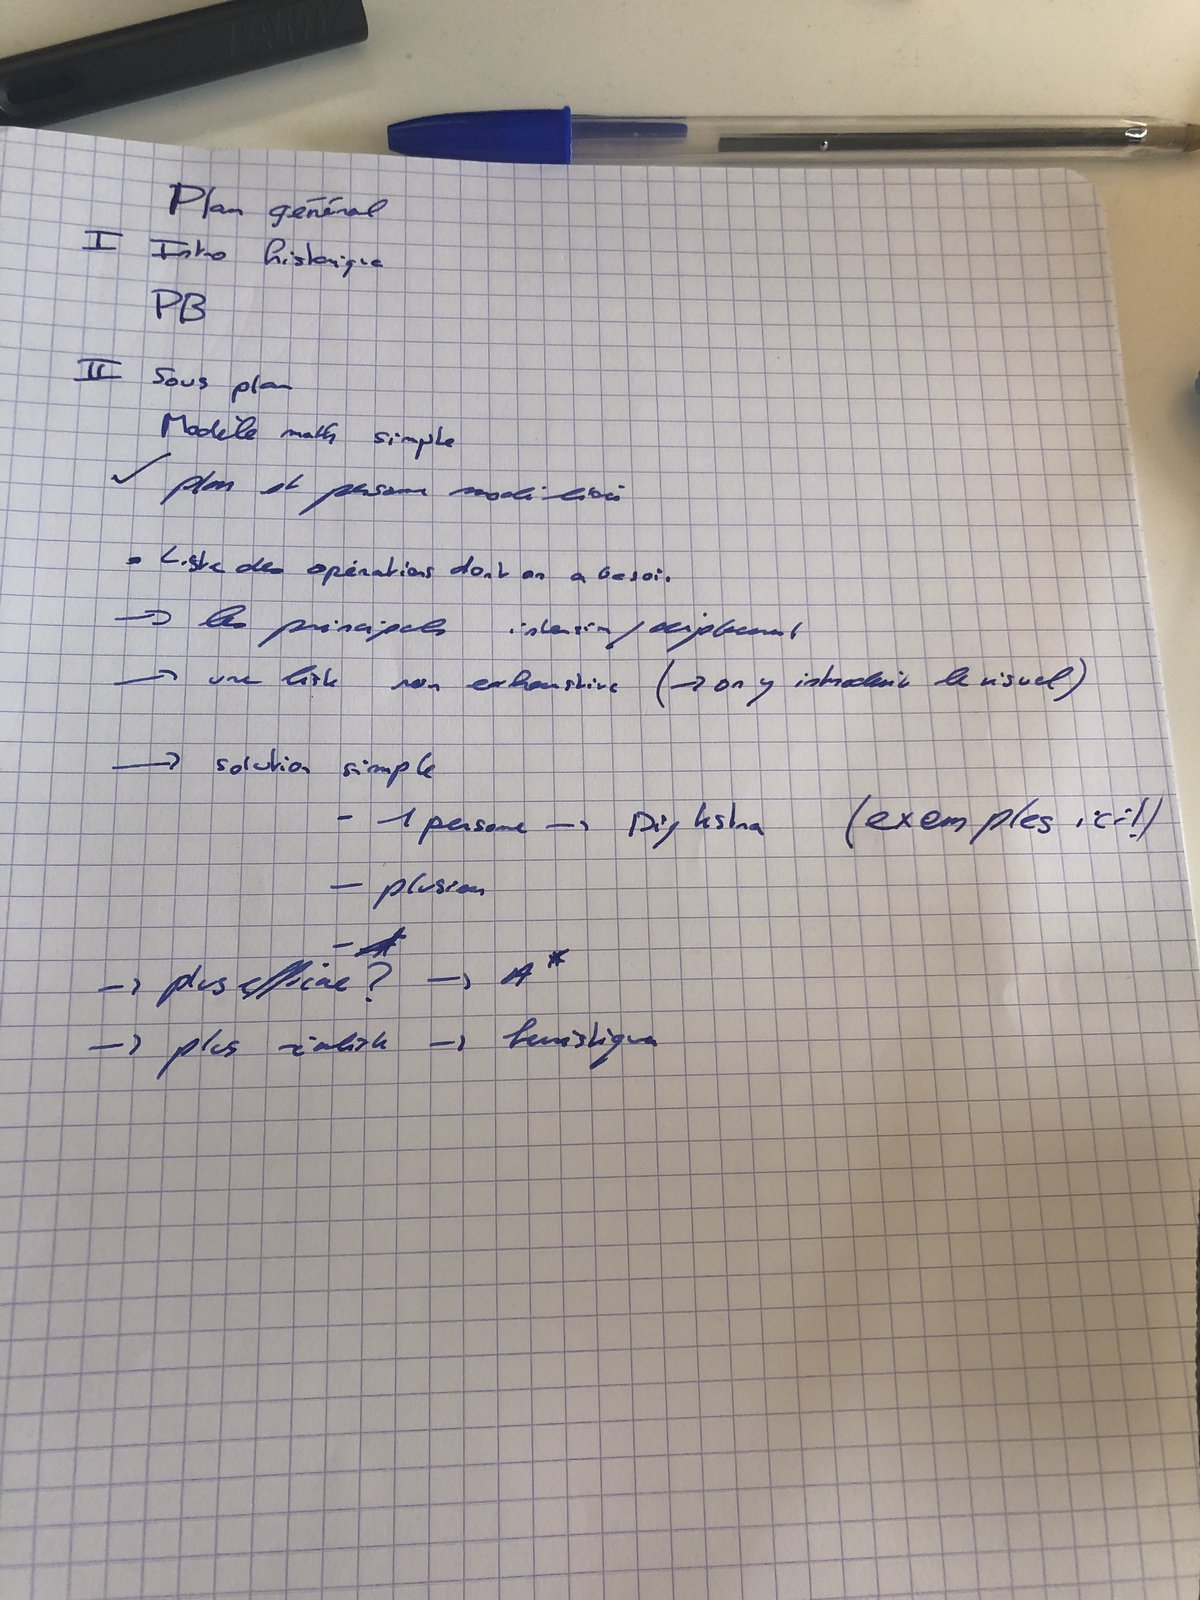 Plan général
I Intro historique
PB
II Sous plan
Modèle math simple
✓ plan et persone modélisés
• Liste des opérations dont on a besoin
→ les principales insertion/déplacement
→ une liste non exhaustive (→ on y introduit le visuel)
→ solution simple
- 1 persone → Dijkstra (exemples ici!)
- plusieurs
-
→ plus efficace? → A*
→ plus réaliste → heuristique